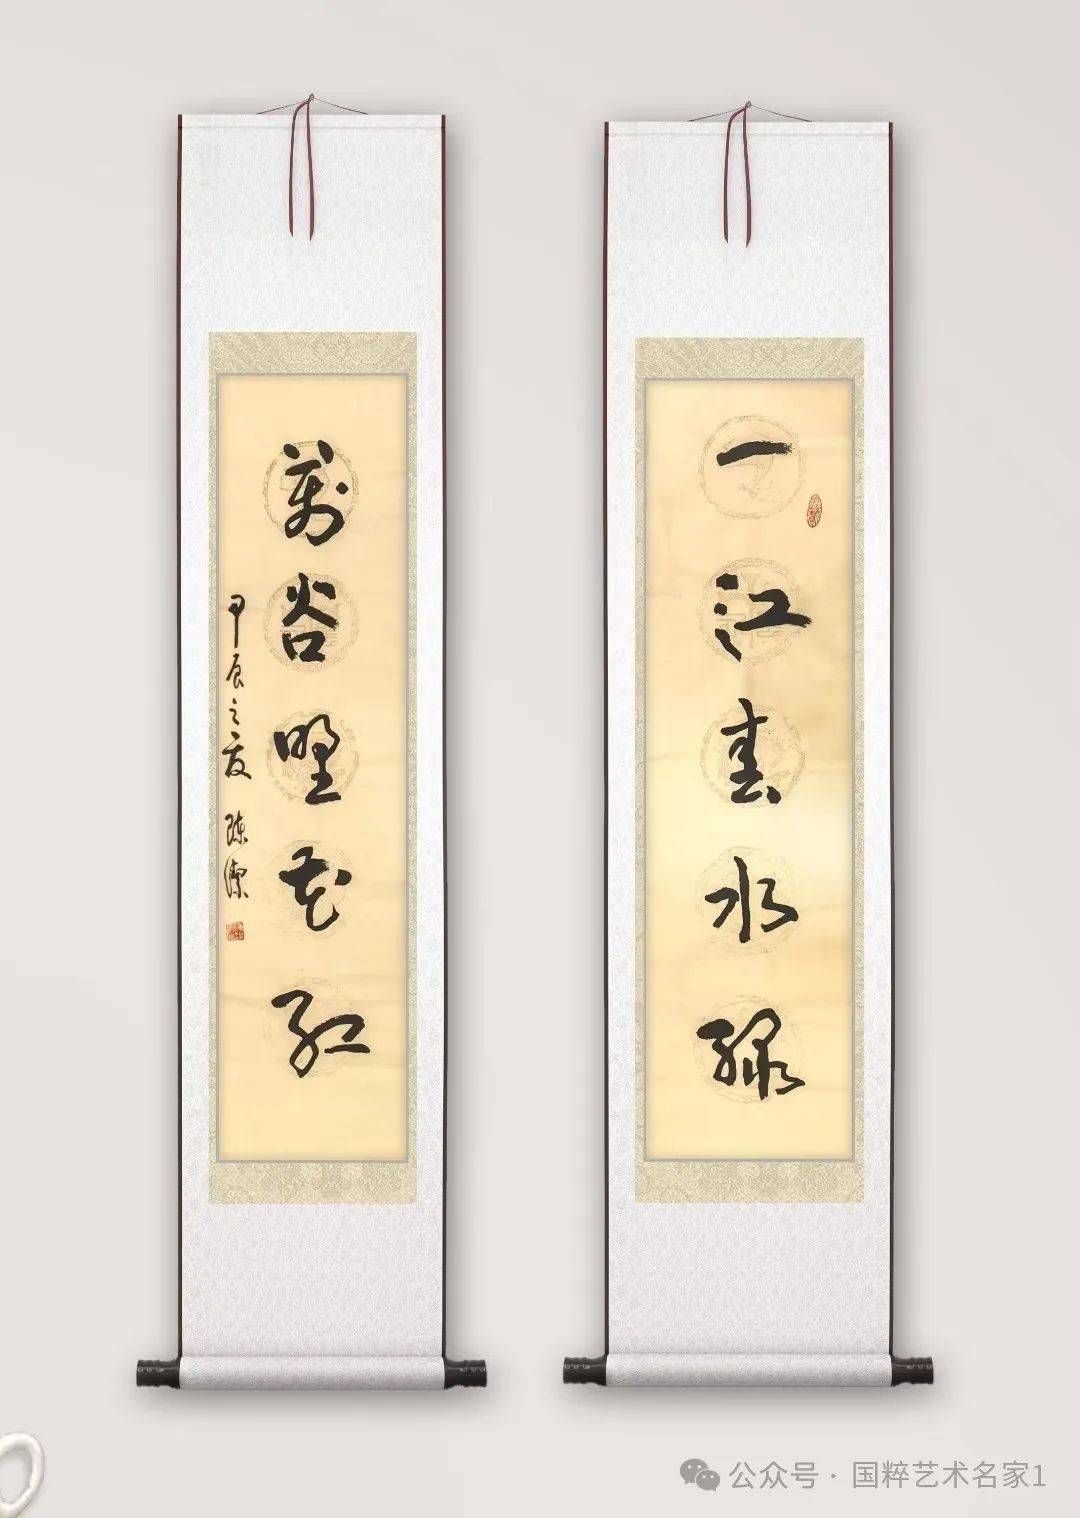 一江春水綠
萬谷野花紅
甲辰之夏 陈潔
公众号 · 国粹艺术名家1